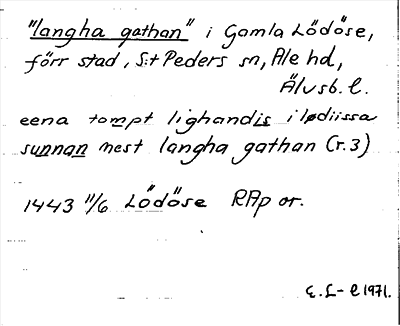 "langha gathan" i Gamla Lödöse,
förr stad, S:t Peders sn, Ale hd,
Älvsb. l.
eena tompt lighandis i lødiissa
sunnan mest langha gathan (r. 3)
1443 11/6 Lödöse RAp or.
E. L-l 1971.